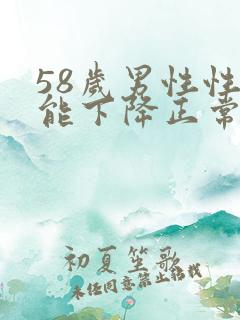 58歲男性性
能下降正常
初夏笙歌
未经同意禁止转载